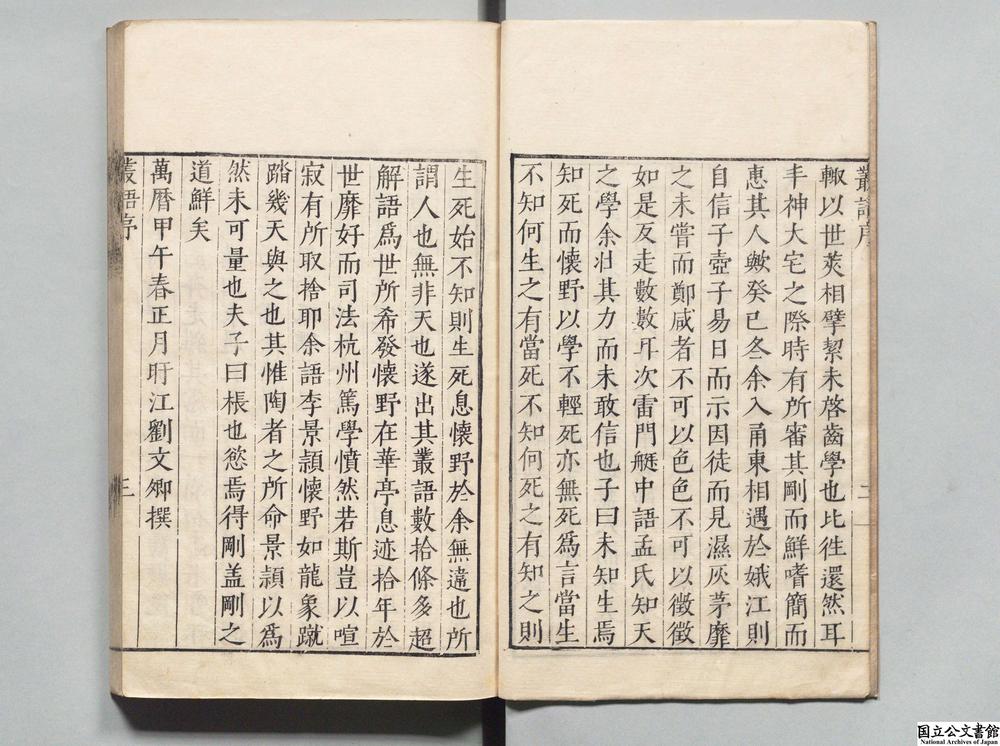 叢語序
二
輙以世莢相孹絜未啓齒學也比徃還然耳
丰神大宅之際時有所審其剛而鮮嗜簡而
恵其人歟癸巳冬余入甬東相遇於娥江則
自信子壺子易日而示因徒而見濕灰茅靡
之未嘗而鄭咸者不可以色色不可以徴徴
如是反走數數耳次雷門艇中語孟氏知天
之學余壯其力而未敢信也子曰未知生焉
知死而懐野以學不輕死亦無死爲言當生
不知何生之有當死不知何死之有知之則
生死始不知則生死息懐野於余無違也所
謂人也無非天也遂出其叢語數拾條多超
解語爲世所希發懐野在華亭息迹拾年於
世靡好而司法杭州篤學憤然若斯豈以喧
寂有所取捨耶余語李景頴懐野如龍象蹴
踏幾天與之也其惟陶者之所命景頴以爲
然未可量也夫子曰棖也慾焉得剛盖剛之
道鮮矣
萬曆甲午春正月旴江劉文卿撰
叢語序
三
国立公文書館
National Archives of Japan